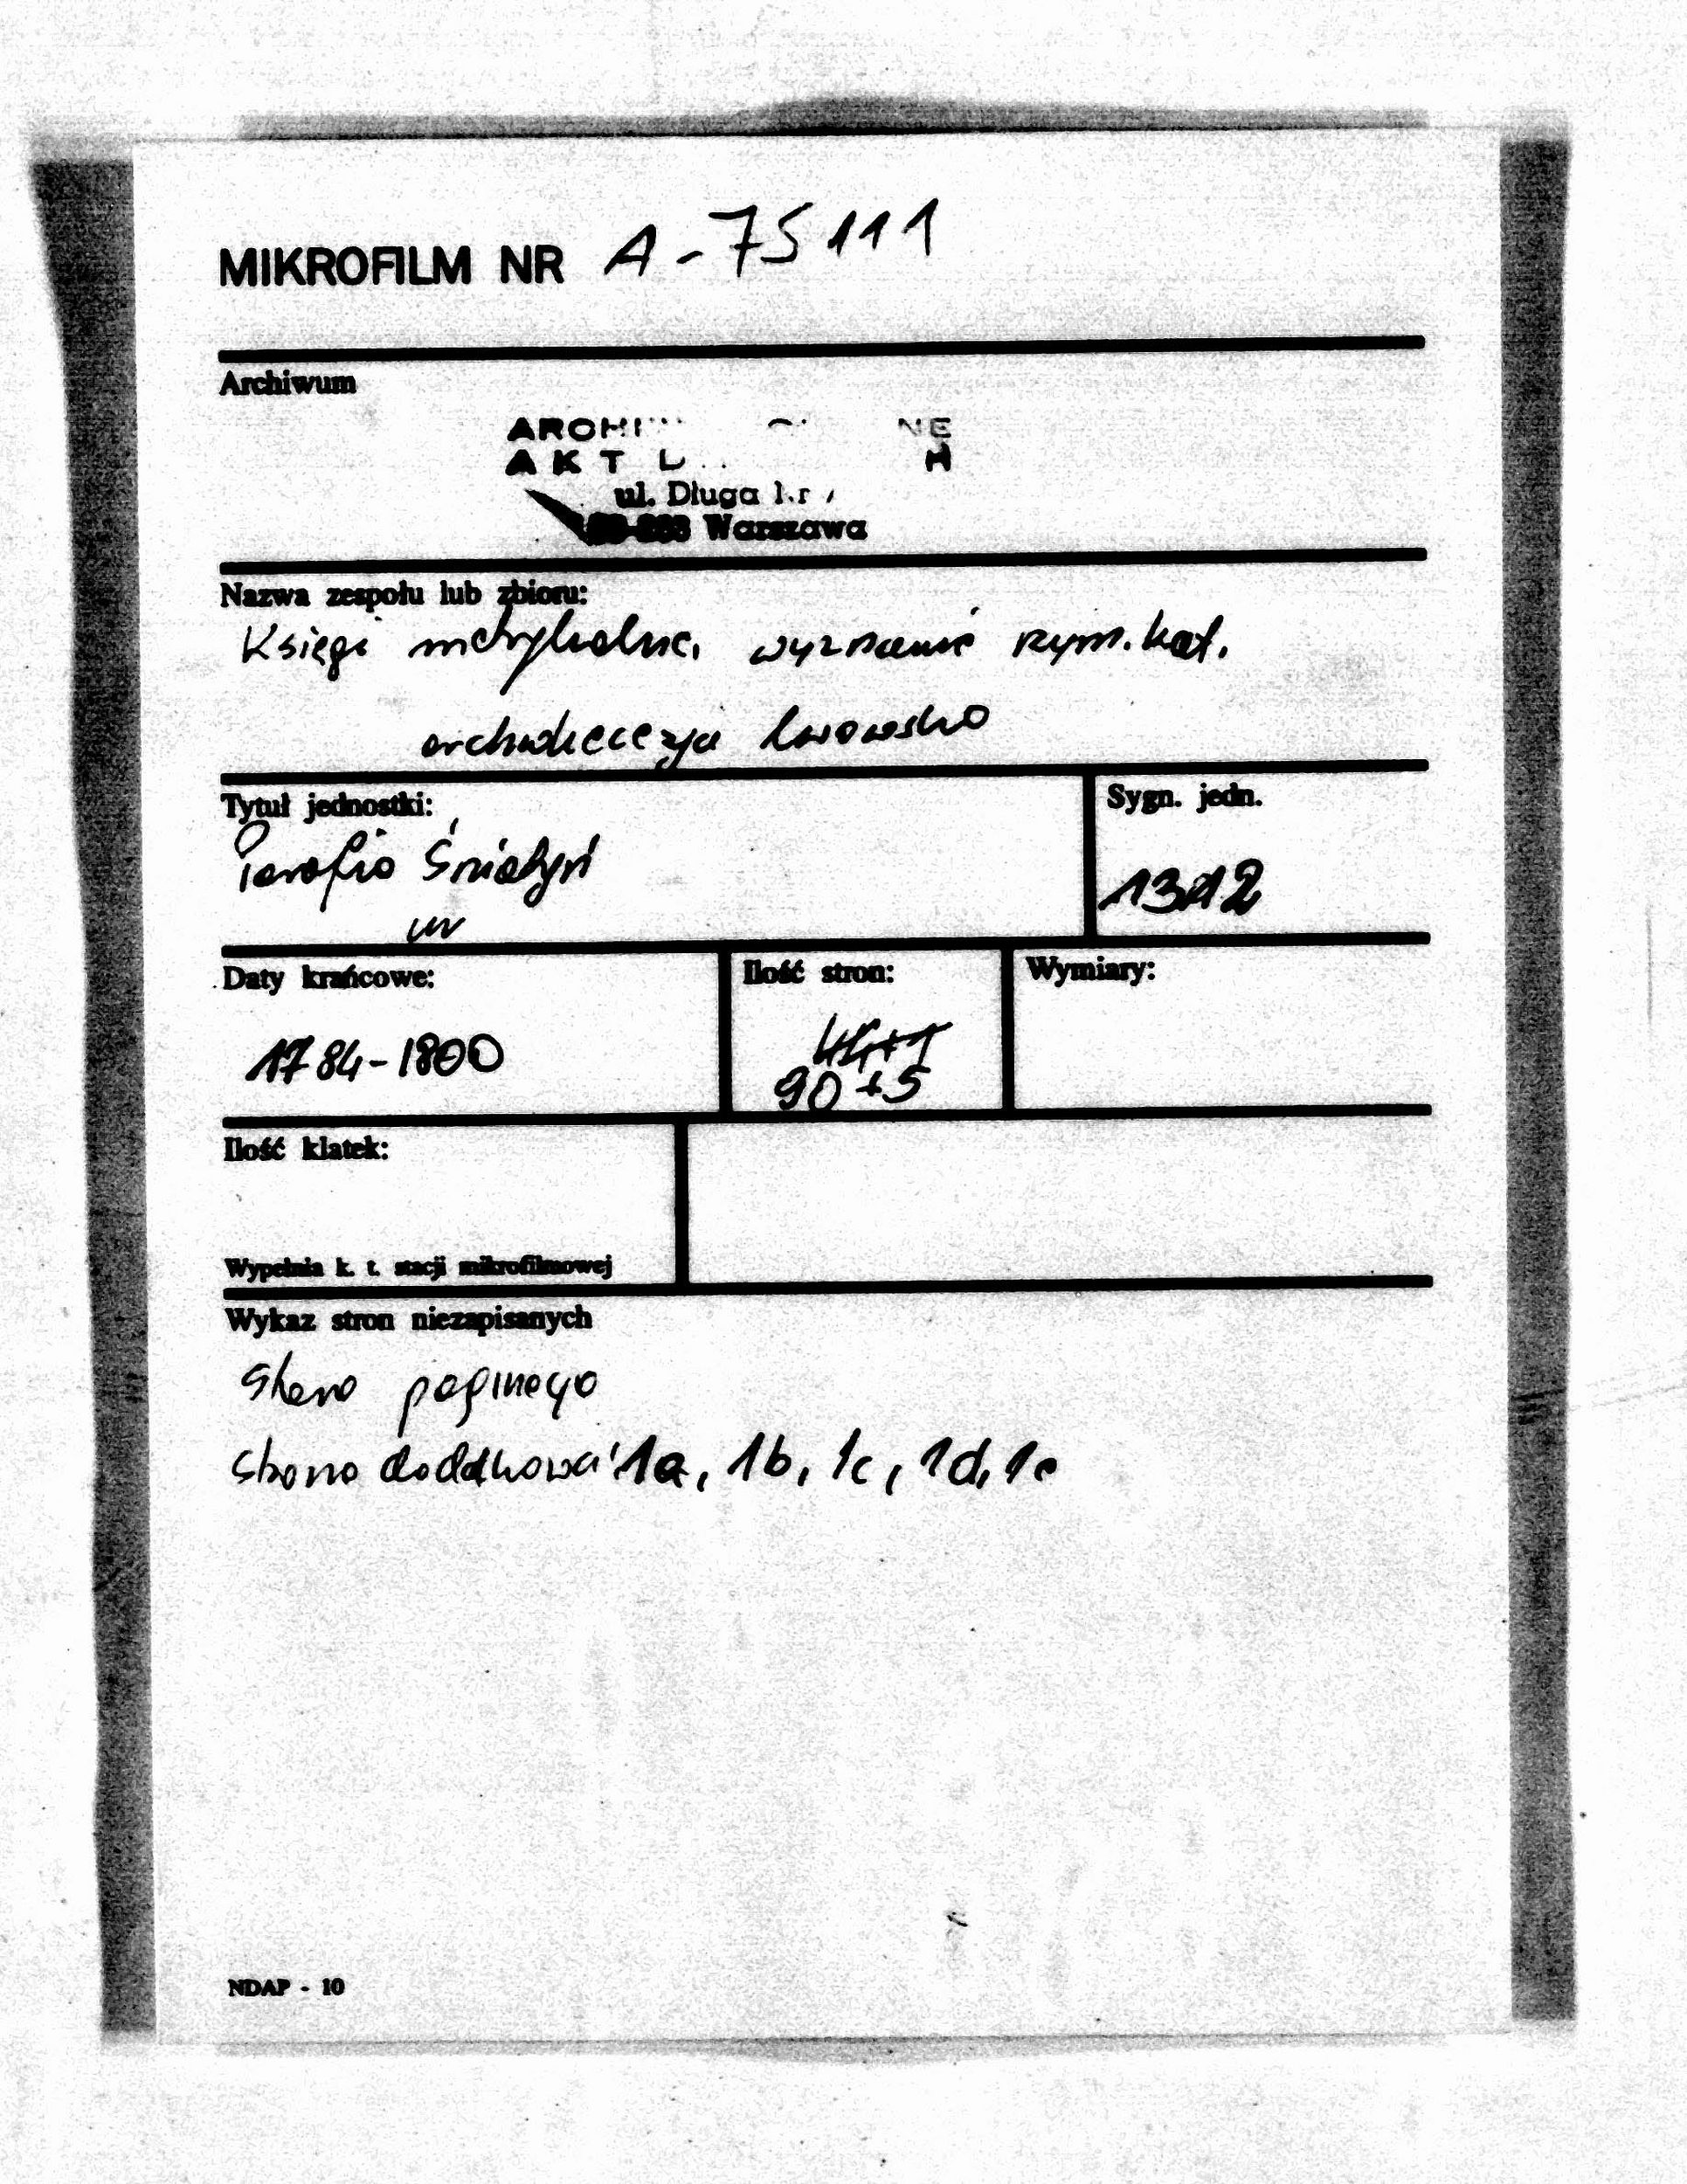 MIKROFILM NR A-75111
Archiwum
AKT
ul. Długa
Warszawa
Nazwa zespołu lub zbioru:
Księgi metrykalne, wyznanie rzym. kat.
archidiecezja lwowska
Tytuł jednostki: Sygn. jedn.
Parafia Śniatyń 1312
ur
Daty krańcowe: Ilość stron: Wymiary:
1784-1800 90+5
Ilość klatek:
Wypełnia k. t. stacji mikrofilmowej
Wykaz stron niezapisanych
Stara paginacja
strona dodatkowa 1a, 1b, 1c, 1d, 1e
NDAP - 10